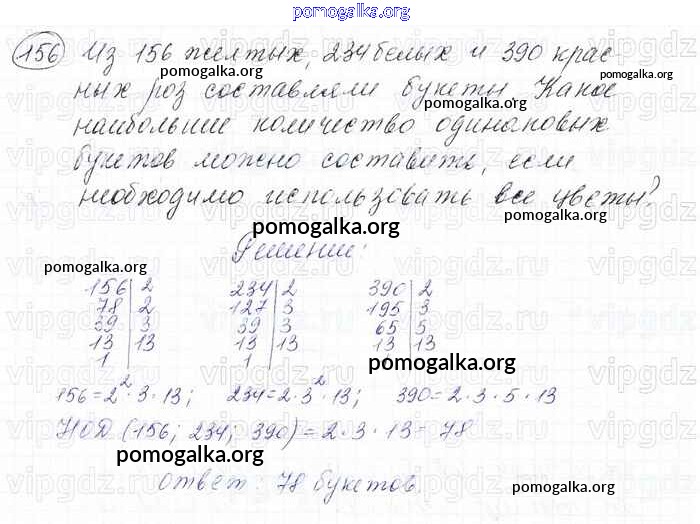 pomogalka.org
156 Из 156 желтых, 234 белых и 390 крас-
ных роз составляли букеты. Какое
наибольшие количество одинаковых
букетов можно составить, если
необходимо использовать все цветы?
Решение:
156 | 2 234 | 2 390 | 2
78 | 2 127 | 3 195 | 3
39 | 3 39 | 3 65 | 5
13 | 13 13 | 13 13 | 13
1 1 1
156 = 2² · 3 · 13; 234 = 2 · 3² · 13; 390 = 2 · 3 · 5 · 13
НОД (156; 234; 390) = 2 · 3 · 13 = 78
Ответ: 78 букетов.
pomogalka.org
pomogalka.org
pomogalka.org
pomogalka.org
pomogalka.org
pomogalka.org
pomogalka.org
pomogalka.org
pomogalka.org
pomogalka.org